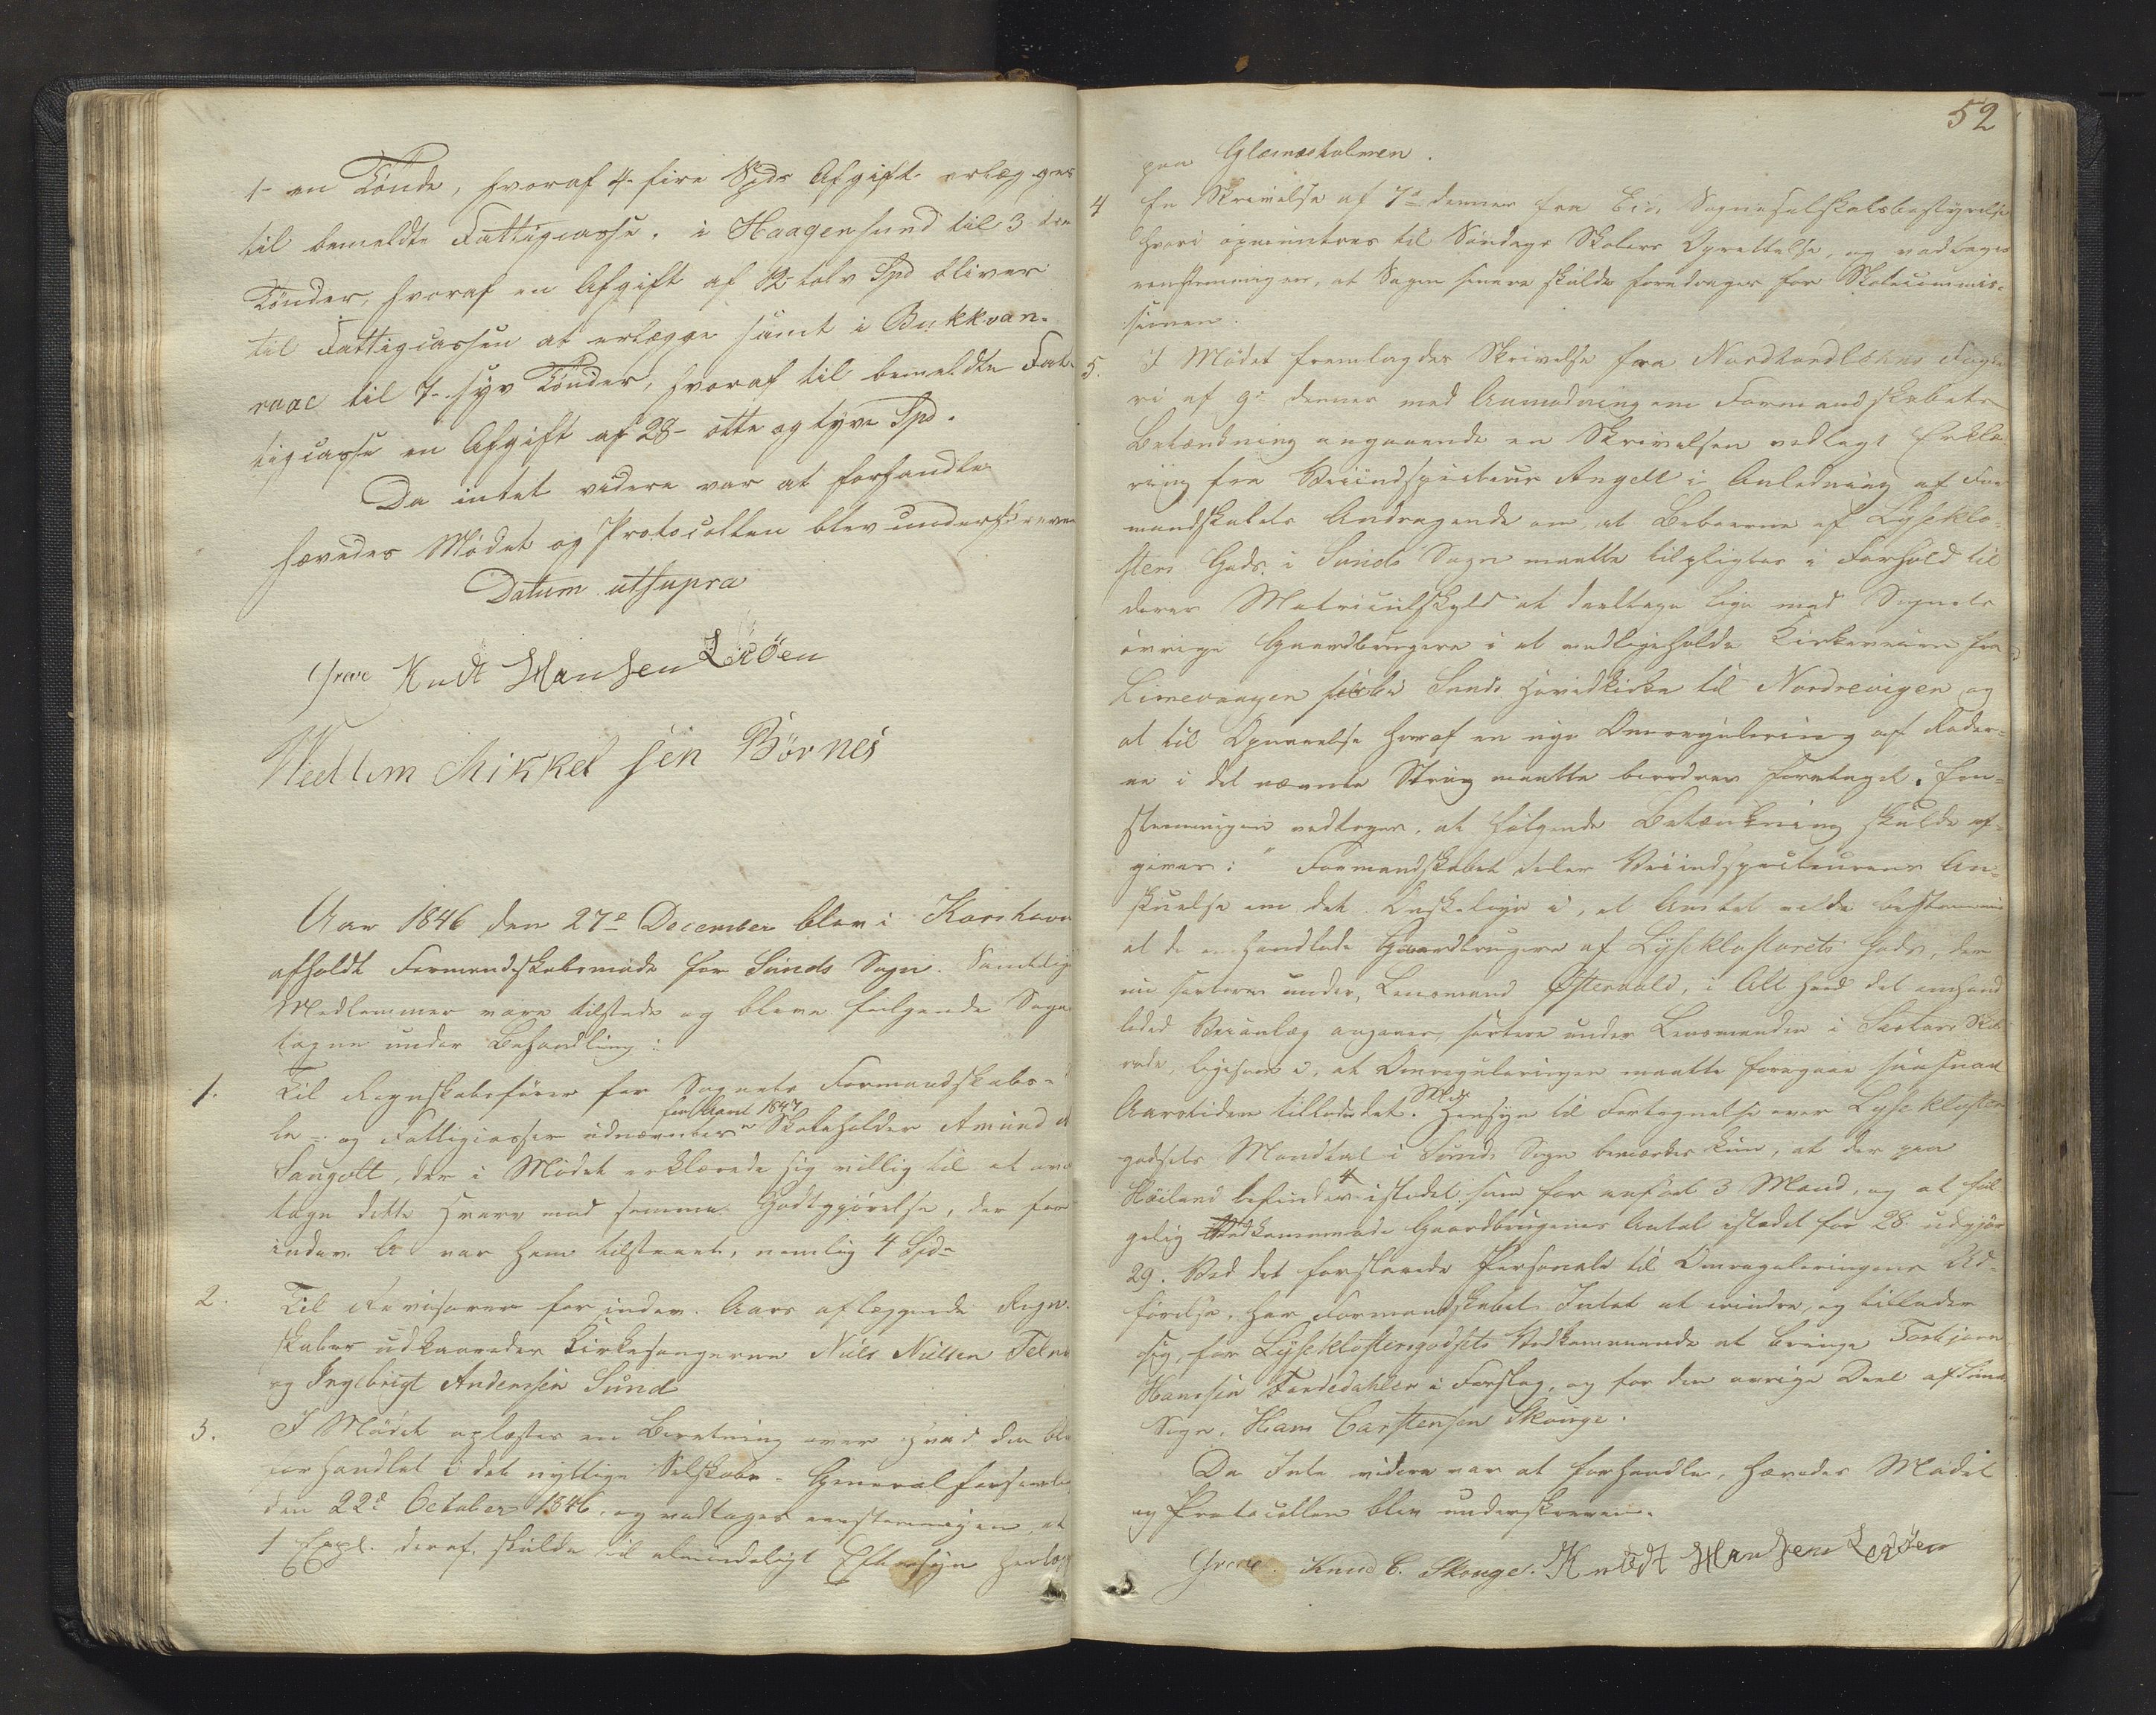 1- en Tønde, hvoraf 4- fire Spd Afgift erlægges
til bemeldte Fattigcasse. i Haagensund til 3 tre
Tønder, hvoraf en Afgift af 12- tolv Spd bliver
til Fattigcassen at erlægge samt i Bukkvan-
raae til 7- syv Tønder, hvoraf til bemeldte Fat-
tigcasse en Afgift af 28- otte og tyve Spd.
Da intet videre var at forhandle
hævedes Mødet og Protocollen blev underskreven
Datum utsupra
Greve Knudt Hansen Lerøen
Wellem Mikkelsen Børnes
Aar 1846 den 27de December blev i Korshavn
afholdt Formandskabsmøde for Sunds Sogn. Samtlige
Medlemmer vare tilstede og bleve følgende Sager
tagne under Behandling:
1. Til Regnskabsfører for Sognets Formandskabs-
og Fattigcasser udnævntes for Aaret 1847 Skoleholder Amund
Laugolt, der i Mødet erklærede sig villig til at over
tage dette Hverv mod samme Godtgjørelse, der for
indev. Aar var ham tilstaaet, nemlig 4 Spd
2. Til Revisorer for indev. Aars aflæggende Regn-
skaber udkaaredes Kirkesangerne Niels Nielsen Telnes
og Ingebrigt Anderssen Sund
3. I Mødet oplæstes en Beretning over hvad der blev
forhandlet i det nyttige Selskabs Generalforsamling
den 22de October 1846, og vedtoges eenstemmigen, at
1 Expl. deraf skulde til almindeligt Eftersyn henlægges
52
paa Glæsnæsholmen.
4 En Skrivelse af 7de dennes fra Eids Sogneselskabsbestyrelse
hvori opmuntres til Søndags Skolers Oprettelse, og vedtoges
eenstemmigen, at Sagen senere skulde foredrages for Skolecommis-
sionen.
5. I Mødet fremlagdes Skrivelse fra Nordhordlehns Fogde-
ri af 9de dennes med Anmodning om Formandskabets
Betænkning angaaende en Skrivelsen vedlagt Erklæ-
ring fra Veiinspecteur Angell i Anledning af For-
mandskabets Andragende om, at Beboerne af Lysekło-
sters Gods i Sunds Sogn maatte tilpligtes i Forhold til
deres Matriculskyld at deeltage lige med Sognets
øvrige Gaardbrugere i at vedligeholde Kirkeveien fra
Limevaagen forbi Sunds Hovedkirke til Nordrevigen og
at til Opnaaelse heraf en nye Omregulering af Roder-
ne i det nævnte Strøg maatte vorde foretaget. Een-
stemmigen vedtoges, at følgende Betænkning skulde af-
gives: "Formandskabet deler Veiinspecteurens An-
skuelse om det Ønskelige i, at Amtet vilde bestemme
at de omhandlede Gaardbrugere af Lyseklosterets Gods, der
nu sortere under Lensmand Østervold, i Alt hvad det omhand
lede Veianlæg angaaer, sortere under Lensmanden i Sartors Skib-
rede, ligesom i, at Omreguleringen maatte foregaae saasnart
Aarstiden tillod det. Med Hensyn til Fortegnelse over Lyseklosters
godsets Mandtal i Sunds Sogn bemærkes kun, at der paa
Høiland befinder 4 istedet som før anført 3 Mand, og at føl
gelig Vedkommende Gaardbrugeres Antal istedet for 28 udgjør
29. Ved det foreslaaede Personale til Omreguleringens Ud-
førelse, har Formandskabet Intet at erindre, og tillader
sig, for Lyseklostersgodsets Vedkommende at bringe Torbjørn
Hanssen Førdedahlen i Forslag, og for den øvrige Deel af Sunds
Sogn, Hans Carstensen Skouge.
Da Intet videre var at forhandle, hævedes Mødet
og Protocollen blev underskreven.
Greve. Knud C. Skouge. Knudt Hansen Lerøen